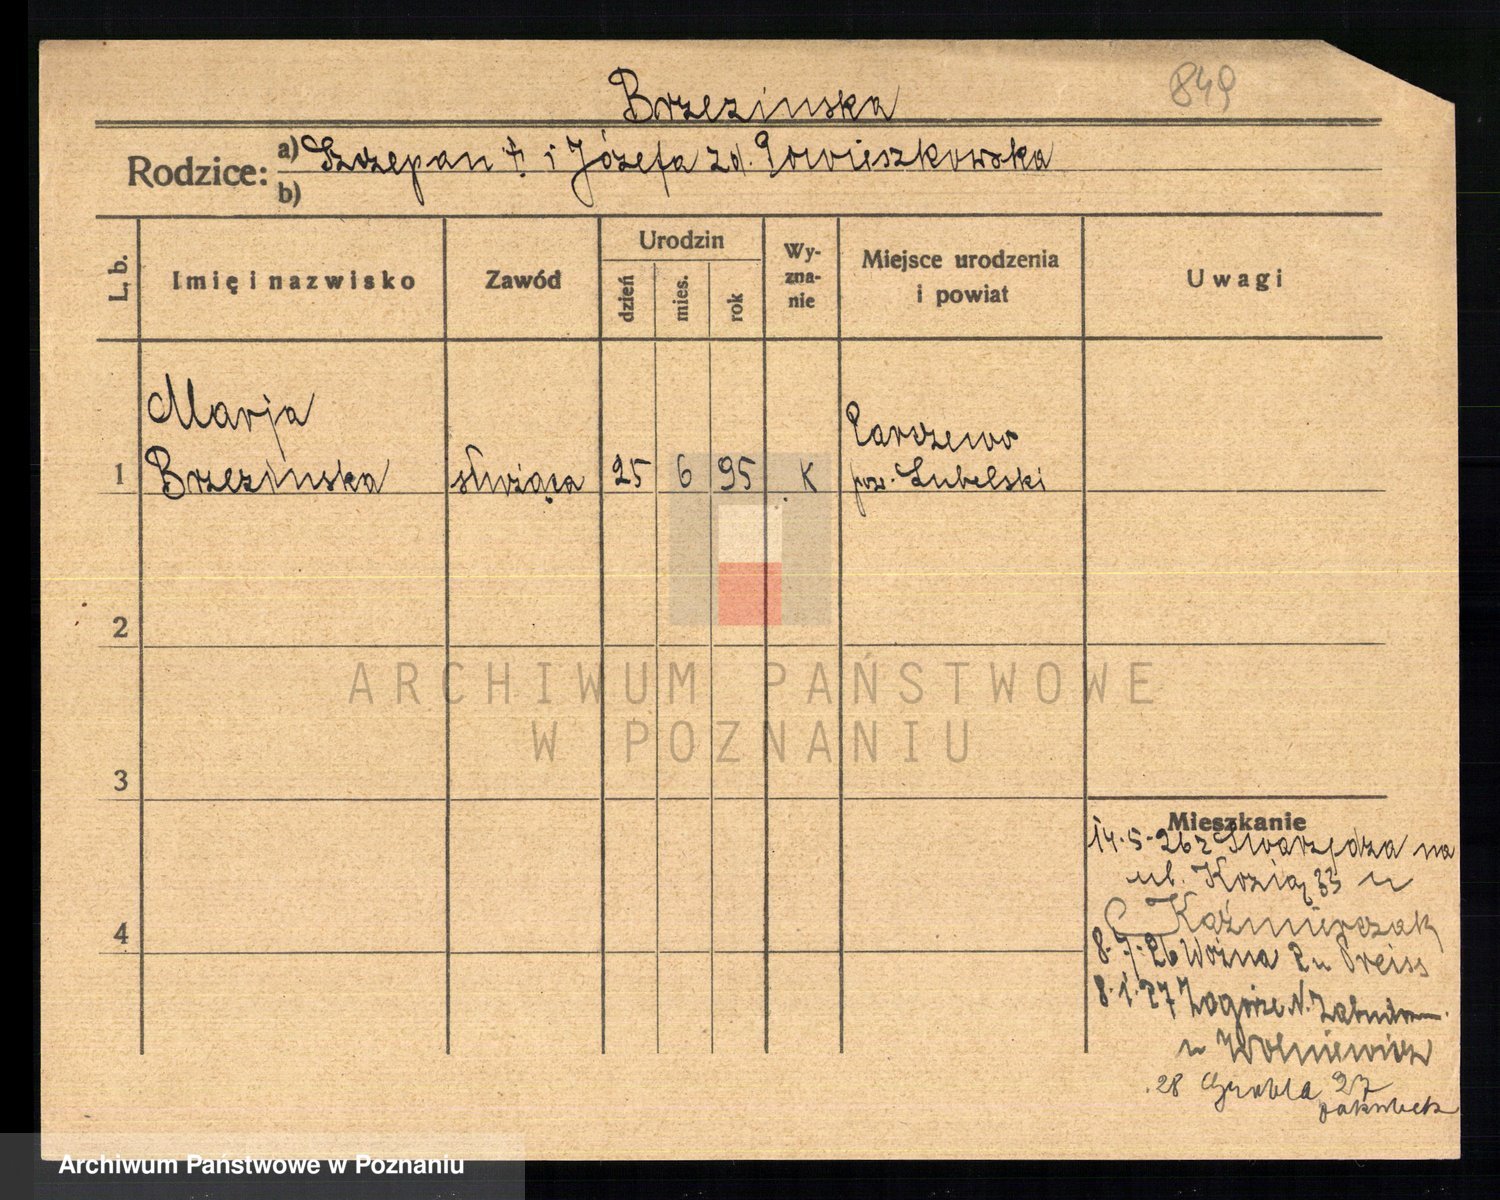 849
Brzezinska
Rodzice: a) Szczepan † i Józefa zd. Powieszkowska
b)
L. b.
Imię i nazwisko
Zawód
Urodzin
dzień
mies.
rok
Wy-
zna-
nie
Miejsce urodzenia
i powiat
Uwagi
Marja
1 Brzezinska służąca 25 6 95 K Parczewo
pow. Lubelski
2
3
4
Mieszkanie
14.5.26 z Swarzędza na
ul. Kozią 33 u
Kaźmierczak
8.7.26 Woźna 2 u Preiss
8.1.27 Zagórze N.
u Wolniewicz
28 Grobla 27
ARCHIWUM PAŃSTWOWE
W POZNANIU
Archiwum Państwowe w Poznaniu